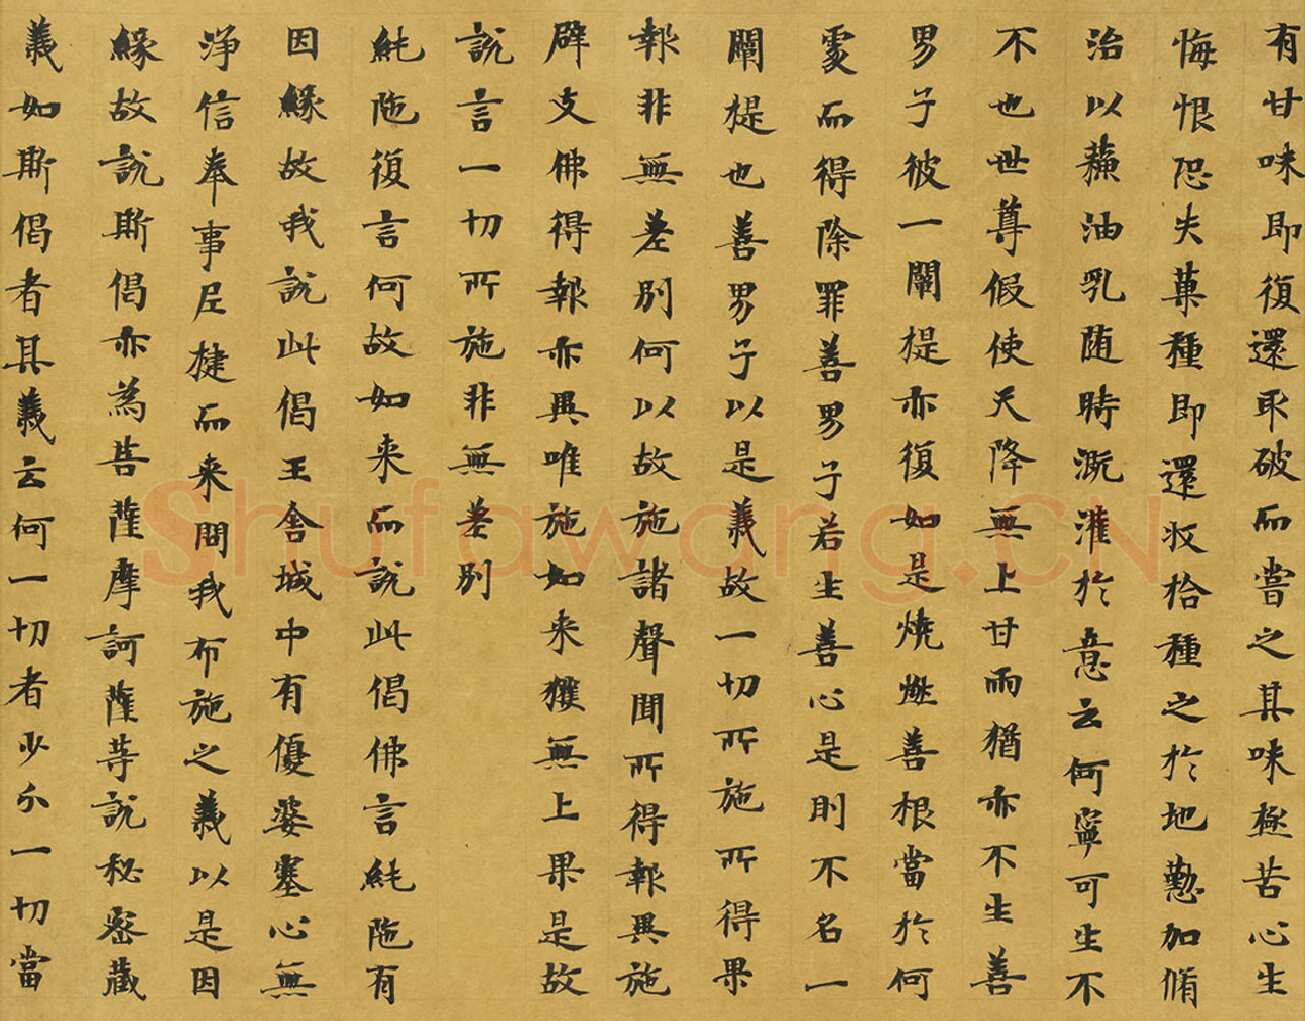 有甘味即復還取破而嘗之其味極苦心生
悔恨恐失菓種即還收拾種之於地懃加脩
治以蘓油乳随時溉灌於意云何寧可生不
不也世尊假使天降無上甘雨猶亦不生善
男子彼一闡提亦復如是燒燃善根當於何
處而得除罪善男子若生善心是則不名一
闡提也善男子以是義故一切所施所得果
報非無差別何以故施諸聲聞所得報異施
辟支佛得報亦異唯施如来獲無上果是故
說言一切所施非無差別
純陁復言何故如来而說此偈佛言純陁有
因緣故我說此偈王舍城中有優婆塞心無
淨信奉事尼揵而来問我布施之義以是因
緣故說斯偈亦為菩薩摩訶薩等說秘密藏
義如斯偈者其義云何一切者少分一切當
Shufawang.CN